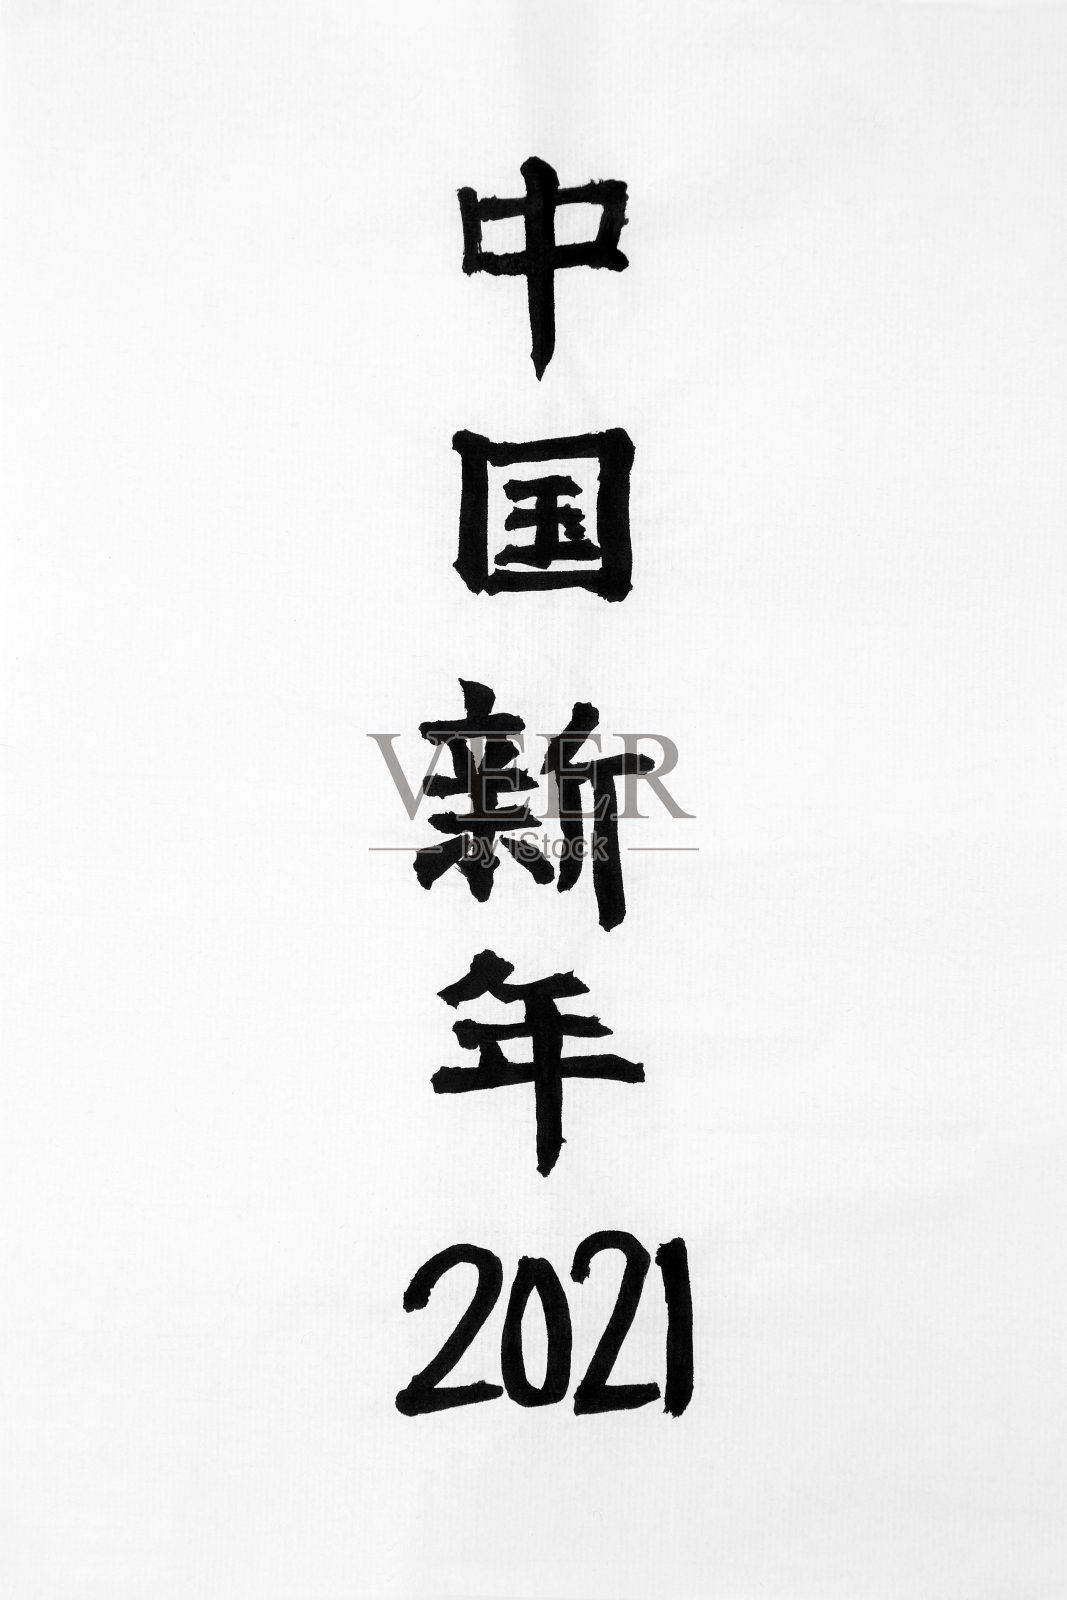 中
国
新
年
2021
VEER
by iStock